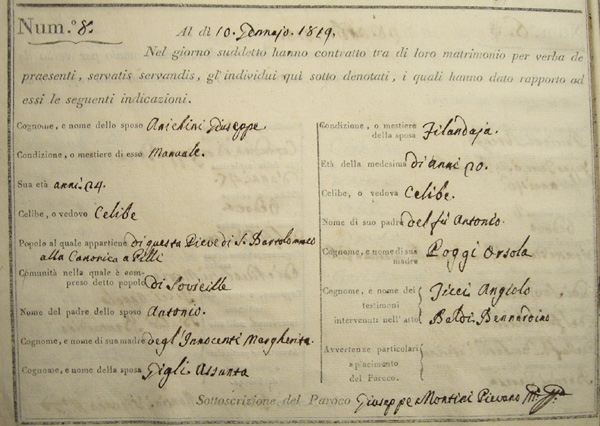 Num.º 8.
Al dì 10. Gennajo. 1819.
Nel giorno suddetto hanno contratto tra di loro matrimonio per verba de
praesenti, servatis servandis, gl'individui quì sotto denotati, i quali hanno dato rapporto ad
essi le seguenti indicazioni.
Cognome, e nome dello sposo Anichini Giuseppe
Condizione, o mestiere di esso Manuale.
Sua età anni 24.
Celibe, o vedovo Celibe
Popolo al quale appartiene di questa Pieve di S. Bartolommeo
alla Canonica a Pilli
Comunità nella quale è com-
preso detto popolo di Sovicille
Nome del padre dello sposo Antonio.
Cognome, e nome di sua madre degl'Innocenti Margherita.
Cognome, e nome della sposa Gigli Assunta
Condizione, o mestiere
della sposa Filandaja.
Età della medesima di anni 20.
Celibe, o vedova Celibe.
Nome di suo padre del fù Antonio.
Cognome, e nome di sua
madre Poggi Orsola
Cognome, e nome dei
testimoni
intervenuti nell'atto
Ticci Angiolo
Baldi Bernardino
Avvertenze particolari
a piacimento
del Paroco.
Sottoscrizione del Paroco Giuseppe Montini Pievano